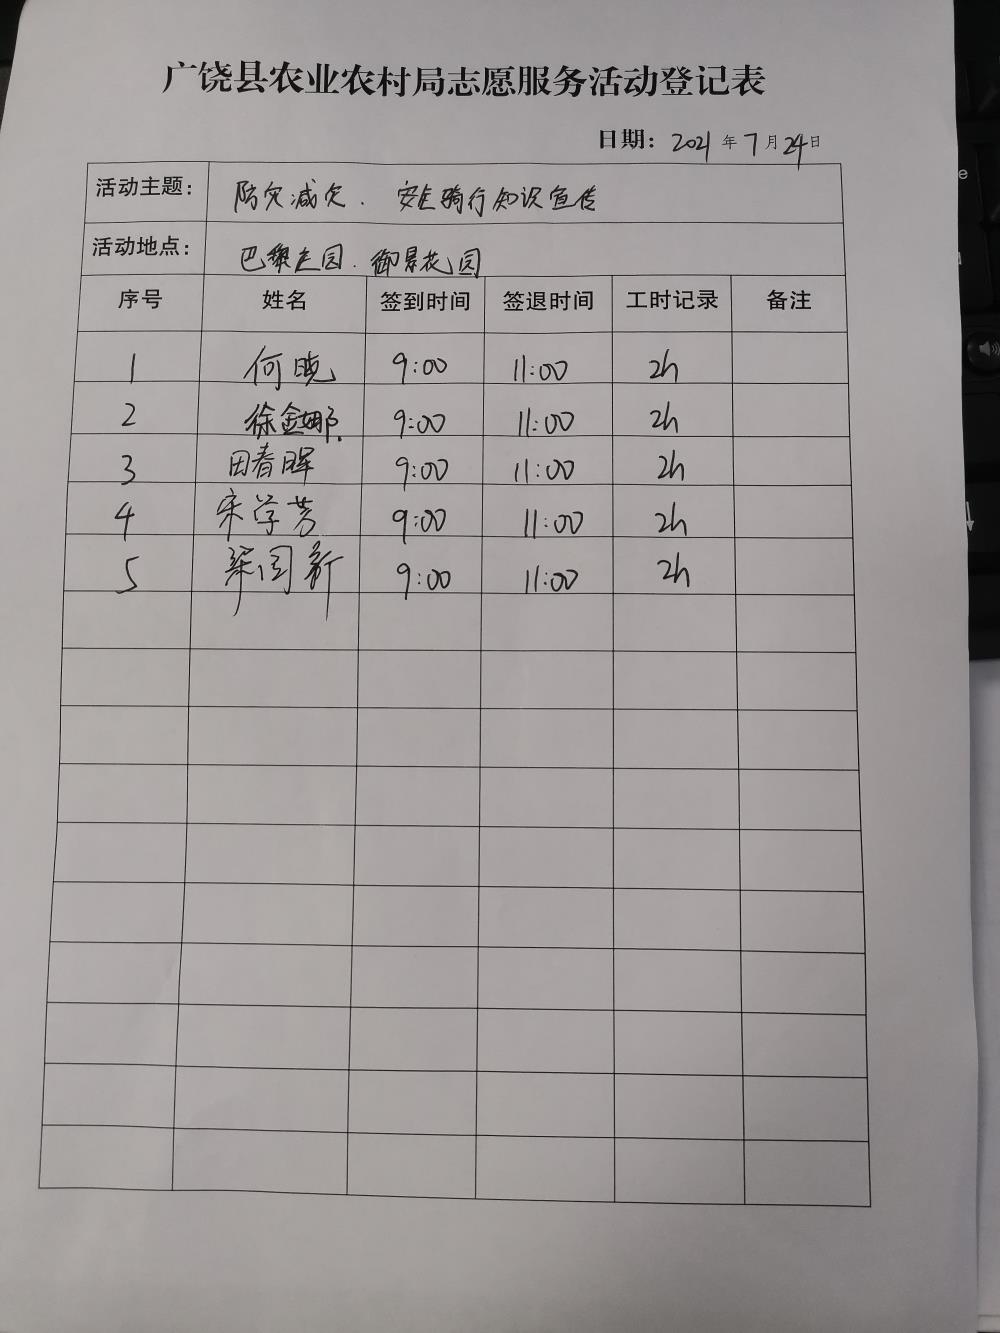 广饶县农业农村局志愿服务活动登记表
日期：2021年7月24日
活动主题：防灾减灾、安全骑行知识宣传
活动地点：巴黎庄园、御景花园
序号 姓名 签到时间 签退时间 工时记录 备注
1 何晓 9:00 11:00 2h
2 徐金娜 9:00 11:00 2h
3 田春晖 9:00 11:00 2h
4 宋学芳 9:00 11:00 2h
5 梁国新 9:00 11:00 2h